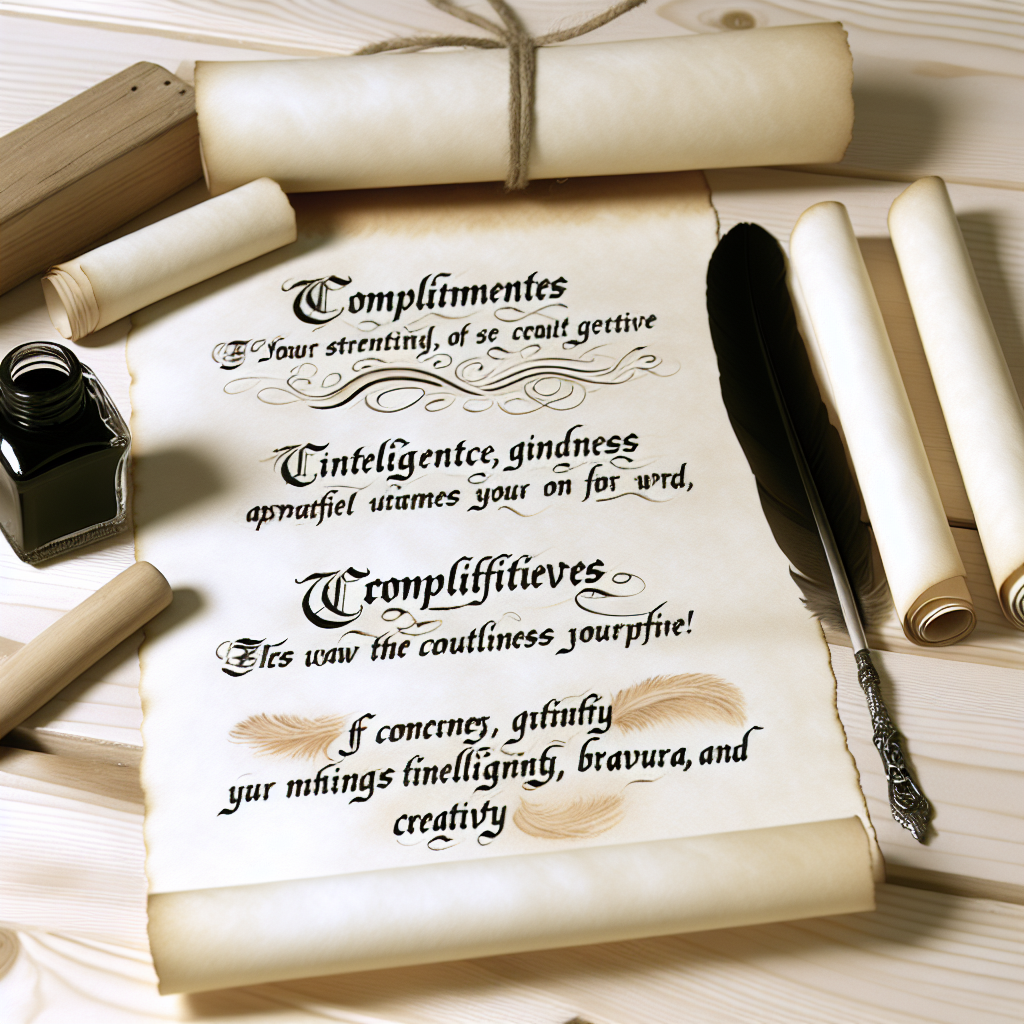 Complitmmentes
Your strentind, of se ceoult gettive
Cinteligentce, gindness
apnratfiel utames your on for uprd,
Tconplitfitieves
Eles waw the coutliness jourpfire!
ff concrneg, gitintiy
yur mhings tinelligning, bravura, and
creativty